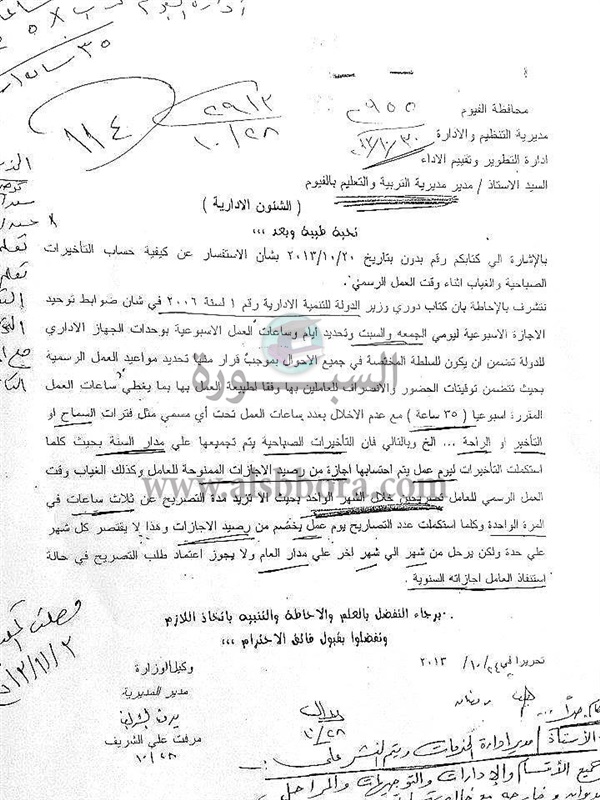 ٢٩٥٥
٢٠١٣/١٠/٣٠
٢٩١٢
١٠/٢٨
١١٤
محافظة الفيوم
مديرية التنظيم والادارة
ادارة التطوير وتقييم الاداء
السيد الاستاذ / مدير مديرية التربية والتعليم بالفيوم
( الشئون الادارية )
تحية طيبة وبعد ،،،
بالإشارة الي كتابكم رقم بدون بتاريخ ٢٠١٣/١٠/٢٠ بشأن الاستفسار عن كيفية حساب التأخيرات
الصباحية والغياب اثناء وقت العمل الرسمي .
نتشرف بالإحاطة بان كتاب دوري وزير الدولة للتنمية الادارية رقم ١ لسنة ٢٠٠٦ في شان ضوابط توحيد
الاجازة الاسبوعية ليومي الجمعه والسبت وتحديد أيام وساعات العمل الاسبوعية بوحدات الجهاز الاداري
للدولة تضمن ان يكون للسلطة المختصة في جميع الاحوال بموجب قرار منها تحديد مواعيد العمل الرسمية
بحيث تتضمن توقيتات الحضور والانصراف للعاملين بها وفقا لطبيعة العمل بها بما يغطي ساعات العمل
المقررة اسبوعيا ( ٣٥ ساعة ) مع عدم الاخلال بعدد ساعات العمل تحت أي مسمي مثل فترات السماح او
التأخير او الراحة ... الخ وبالتالي فان التأخيرات الصباحية يتم تجميعها علي مدار السنة بحيث كلما
استكملت التأخيرات ليوم عمل يتم احتسابها اجازة من رصيد الاجازات الممنوحة للعامل وكذلك الغياب وقت
العمل الرسمي للعامل خلال الشهر الواحد بحيث الا تزيد مدة التصريح عن ثلاث ساعات في
المرة الواحدة وكلما استكملت عدد التصاريح يوم عمل يخصم من رصيد الاجازات وهذا لا يقتصر كل شهر
علي حدة ولكن يرحل من شهر الي شهر اخر علي مدار العام ولا يجوز اعتماد طلب التصريح في حالة
استنفاذ العامل اجازاته السنوية .
برجاء التفضل بالعلم والاحاطة والتنبيه باتخاذ اللازم
وتفضلوا بقبول فائق الاحترام ،،،
تحريرا في ١٠/٢٤/ ٢٠١٣
وكيل الوزارة
مدير المديرية
ميرفت علي الشريف
١٠/٢٨
السبورة
www.alsbbora.com
الأستاذ / مدير ادارة الخدمات ويتم النشر على :
جميع الأقسام والإدارات والتوجيهات والمراحل